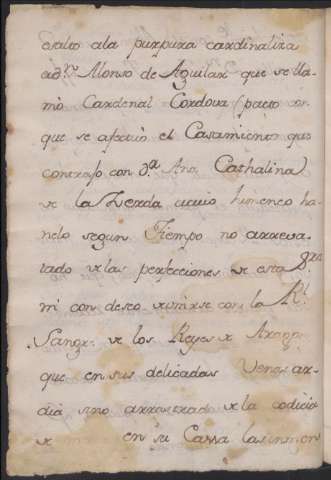 exalto ala purpura cardinalizia
a dn. Alonso de Aguilar que se lla
mò Cardenal Cordova (pacto con
que se afectuò el Casamiento que
contrajo con D.a Ana Cathalina)
de la Zerda cuyo himeneo ha
nelo segun Tiempo no arreva
tado de las perfecciones de esta S.ra
ni con deseo de unirse con la R.l
Sangre de los Reyes de Aragon
que en sus delicadas Venas ar
dia sino arrastrado de la codicia
de en su Cassa las inmens